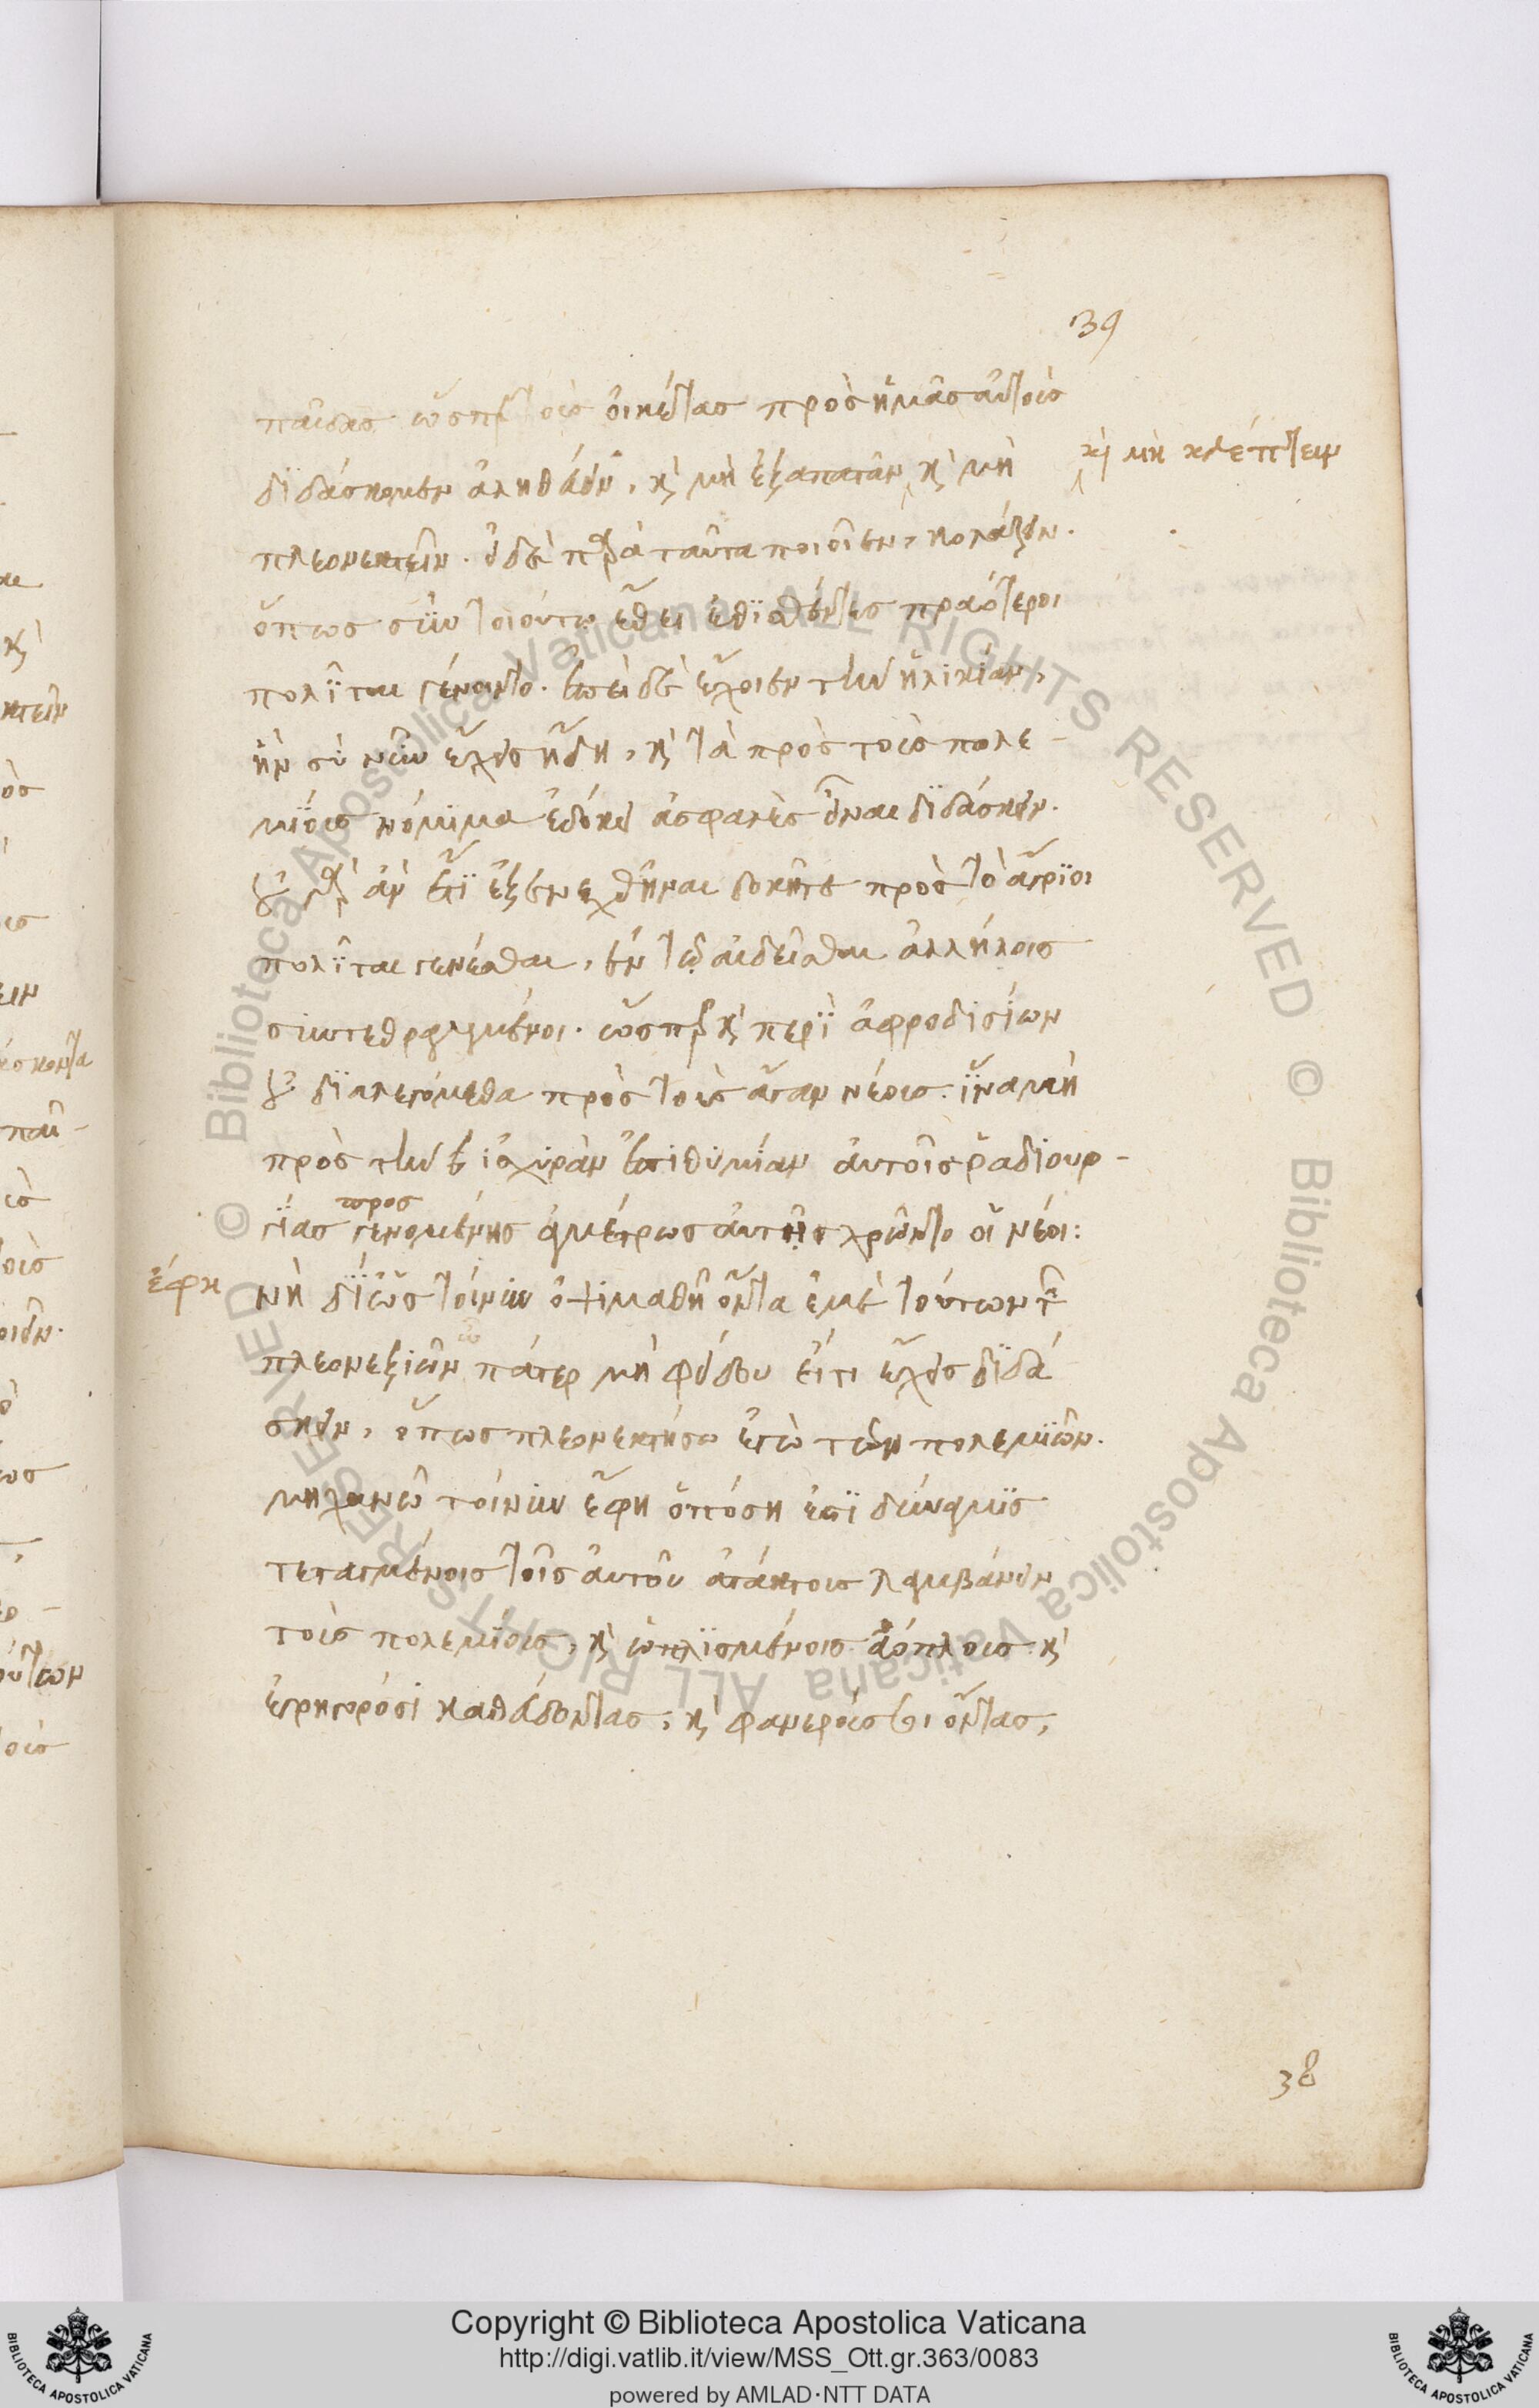 39
παῖδας ὥσπερ τοὺς οἰκέτας πρὸς ἡμᾶς αὐτοὺς
διδάσκομεν ἀληθεύειν, καὶ μὴ ἐξαπατᾶν καὶ μὴ
καὶ μὴ κλέπτειν
πλεονεκτεῖν. εἰ δὲ παρὰ ταῦτα ποιοῖεν, κολάζειν.
ὅπως σὺν τοιούτῳ ἔθει ἐθισθέντες πραότεροι
πολῖται γένοιντο. ἐπεὶ δὲ ἔχοιεν τὴν ἡλικίαν,
ἣν σὺ νῦν ἔχεις ἤδη, καὶ τὰ πρὸς τοὺς πολε-
μίους νόμιμα ἐδόκει ἀσφαλὲς εἶναι διδάσκειν.
οὐ γὰρ ἂν ἔτι ἐξενεχθῆναι δοκῆτε πρὸς τὸ ἄγριοι
πολῖται γενέσθαι, ἐν τῷ αἰδεῖσθαι ἀλλήλους
συντεθραμμένοι. ὥσπερ καὶ περὶ ἀφροδισίων
οὐ διαλεγόμεθα πρὸς τοὺς ἄγαν νέους. ἵνα μὴ
πρὸς τὴν ἰσχυρὰν ἐπιθυμίαν αὐτοῖς ῥαδιουρ-
προς
γίας γενομένης ἀμέτρως αὐτῇ χρῶντο οἱ νέοι:
ἔφη
νὴ δί' ὡς τοίνυν ὀψιμαθῆ ὄντα ἐμὲ τούτων τῶν
πλεονεξιῶν ὦ πάτερ μὴ φείδου εἴ τι ἔχεις διδά
σκειν, ὅπως πλεονεκτήσω ἐγὼ τῶν πολεμίων.
μηχανῶ τοίνυν ἔφη ὁπόση ἐστὶ δύναμις
τεταγμένοις τοῖς αὐτοῦ ἀτάκτους λαμβάνειν
τοὺς πολεμίους, καὶ ὡπλισμένοις ἀόπλους καὶ
ἐγρηγορόσι καθεύδοντας, καὶ φανερούς σοι ὄντας,
38
Copyright © Biblioteca Apostolica Vaticana
http://digi.vatlib.it/view/MSS_Ott.gr.363/0083
powered by AMLAD·NTT DATA